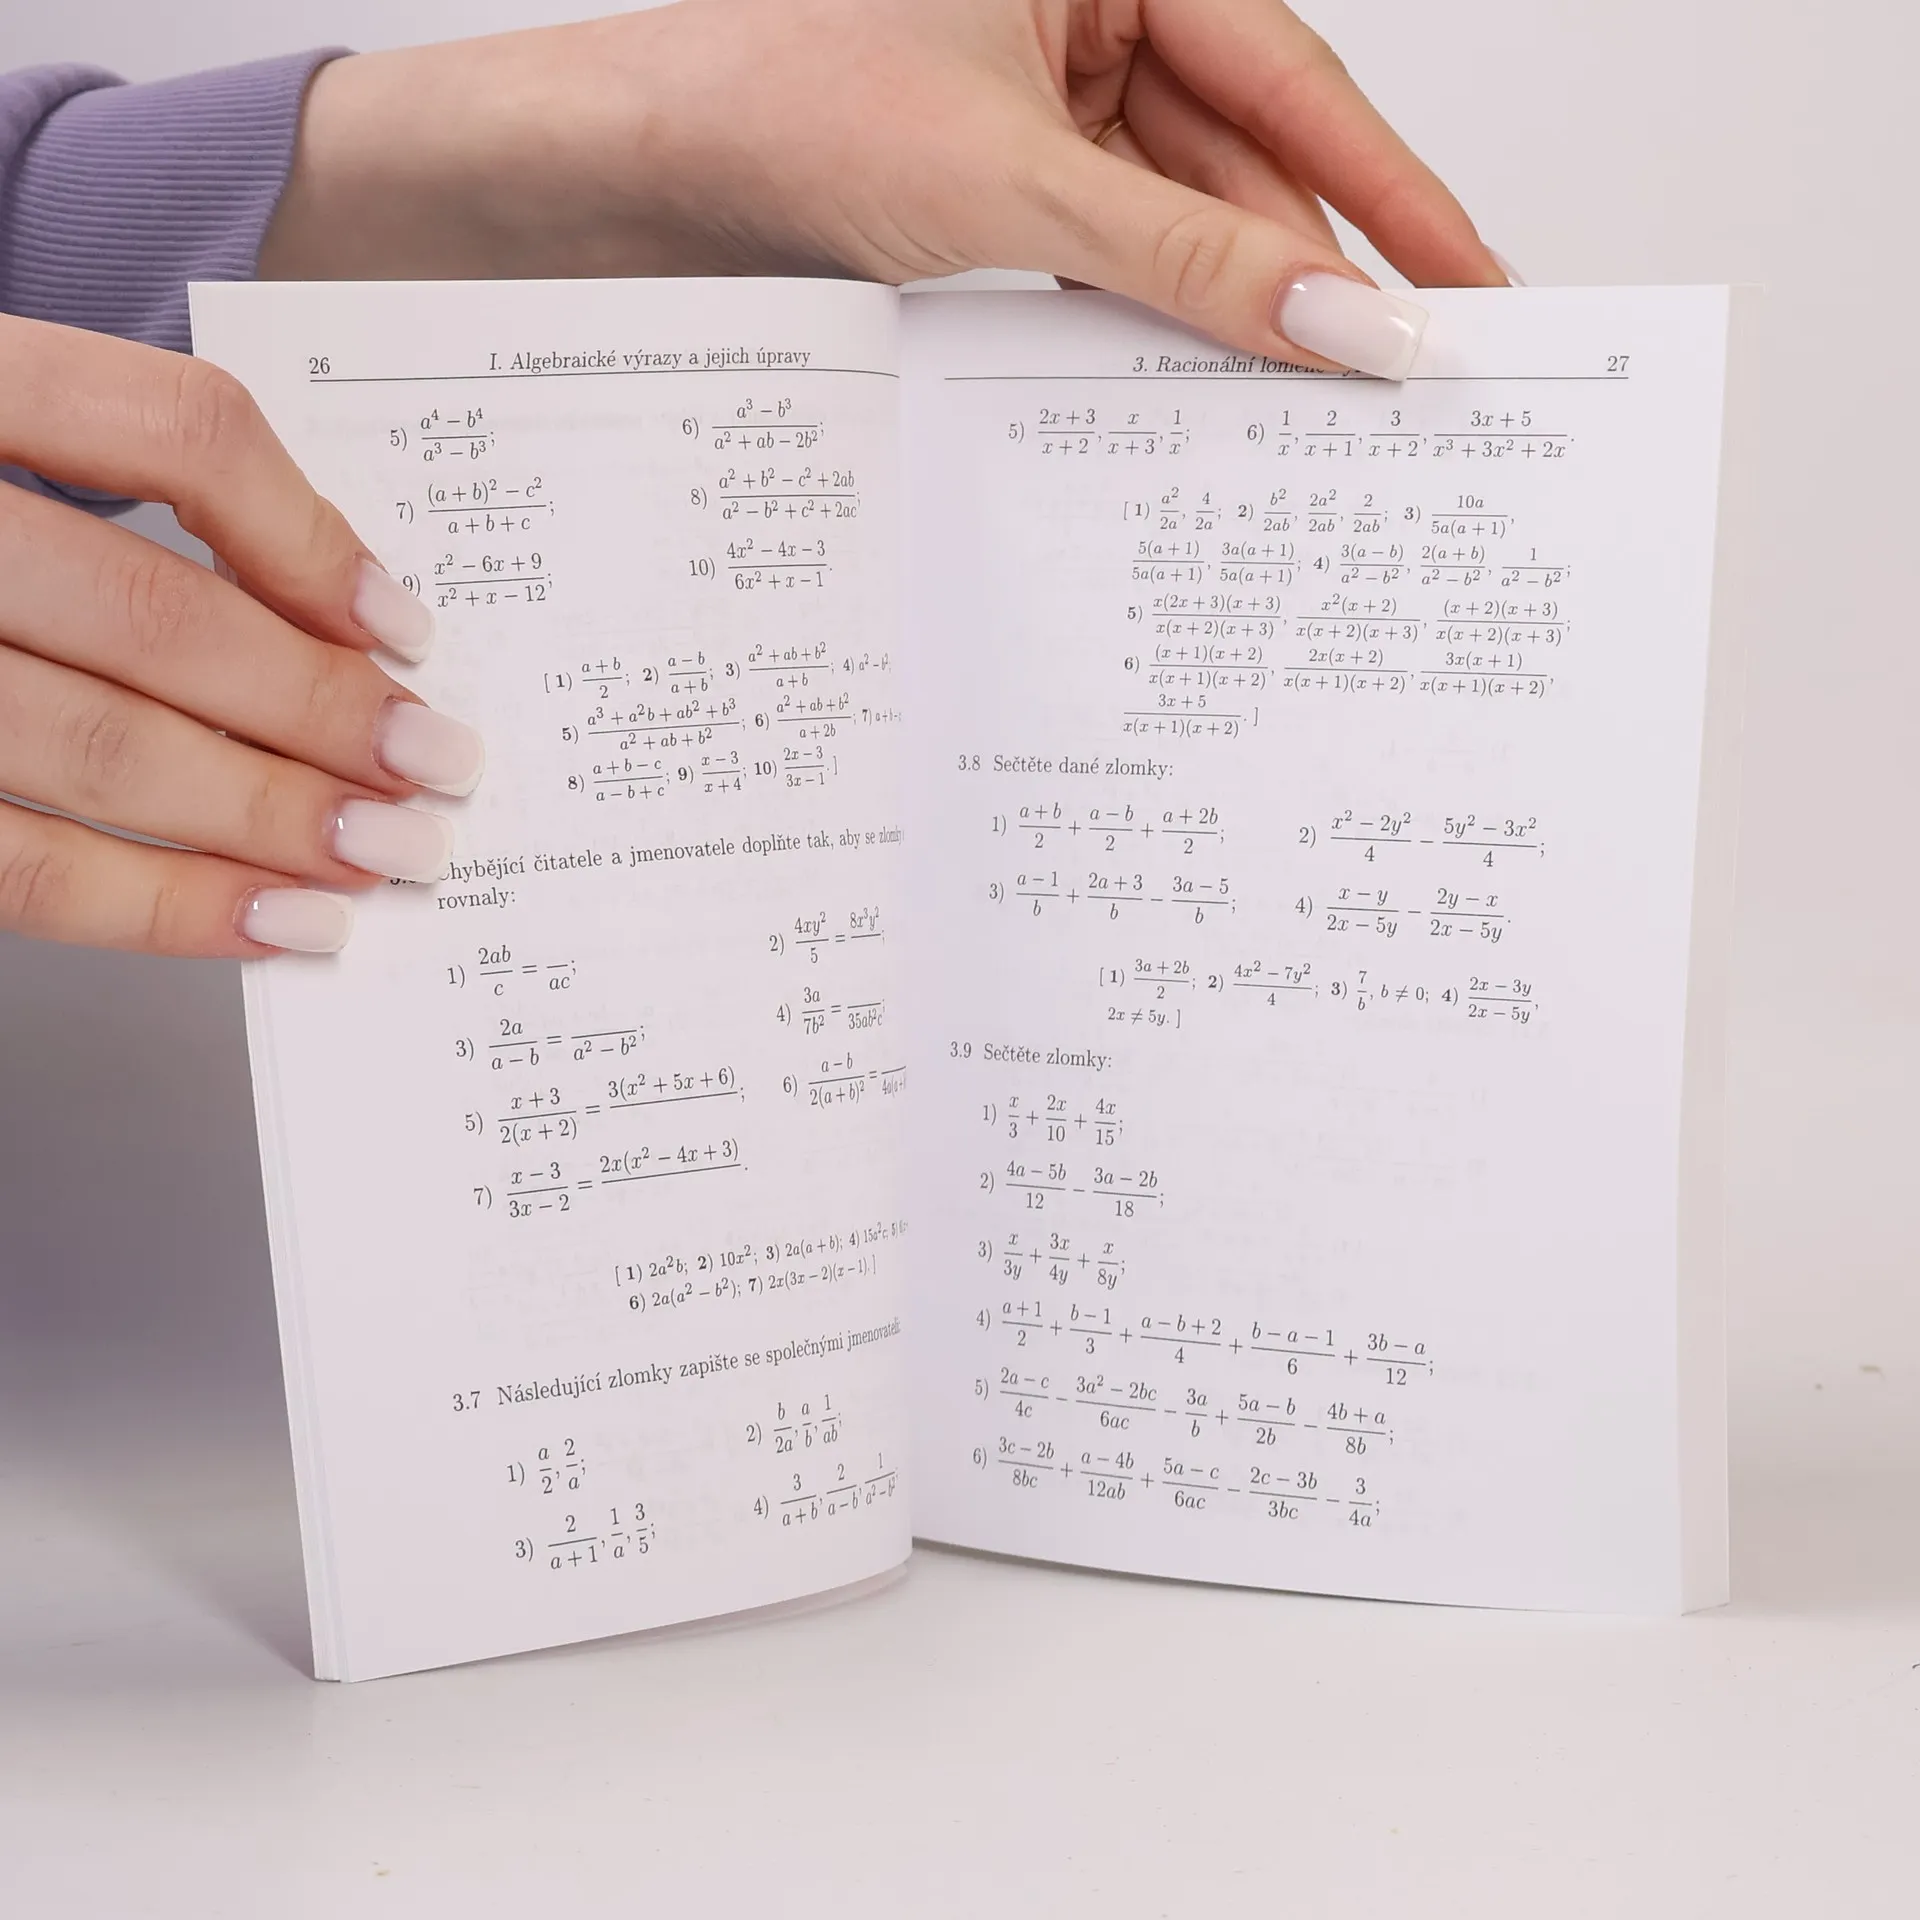 26 I. Algebraické výrazy a jejich úpravy
5) \frac{a^4 - b^4}{a^3 - b^3}; 6) \frac{a^3 - b^3}{a^2 + ab - 2b^2};
7) \frac{(a + b)^2 - c^2}{a + b + c}; 8) \frac{a^2 + b^2 - c^2 + 2ab}{a^2 - b^2 + c^2 + 2ac};
9) \frac{x^2 - 6x + 9}{x^2 + x - 12}; 10) \frac{4x^2 - 4x - 3}{6x^2 + x - 1}.
[ 1) \frac{a + b}{2}; 2) \frac{a - b}{a + b}; 3) \frac{a^2 + ab + b^2}{a + b}; 4) a^2 - b^2;
5) \frac{a^3 + a^2b + ab^2 + b^3}{a^2 + ab + b^2}; 6) \frac{a^2 + ab + b^2}{a + 2b}; 7) a + b -
8) \frac{a + b - c}{a - b + c}; 9) \frac{x - 3}{x + 4}; 10) \frac{2x - 3}{3x - 1}. ]
hybějící čitatele a jmenovatele doplňte tak, aby se zlomky
rovnaly:
1) \frac{2ab}{c} = \frac{}{ac}; 2) \frac{4xy^2}{5} = \frac{8x^3y^2}{};
3) \frac{2a}{a - b} = \frac{}{a^2 - b^2}; 4) \frac{3a}{7b^2} = \frac{}{35ab^2c};
5) \frac{x + 3}{2(x + 2)} = \frac{3(x^2 + 5x + 6)}{}; 6) \frac{a - b}{2(a + b)^2} = \frac{}{4a(a +
7) \frac{x - 3}{3x - 2} = \frac{2x(x^2 - 4x + 3)}{}.
[ 1) 2a^2b; 2) 10x^2; 3) 2a(a + b); 4) 15a^2c; 5)
6) 2a(a^2 - b^2); 7) 2x(3x - 2)(x - 1). ]
3.7 Následující zlomky zapište se společnými jmenovateli:
1) \frac{a}{2}, \frac{2}{a}; 2) \frac{b}{2a}, \frac{a}{b}, \frac{1}{ab};
3) \frac{2}{a + 1}, \frac{1}{a}, \frac{3}{5}; 4) \frac{3}{a + b}, \frac{2}{a - b}, \frac{1}{a^2 - b^2};
3. Racionální 27
5) \frac{2x + 3}{x + 2}, \frac{x}{x + 3}, \frac{1}{x}; 6) \frac{1}{x}, \frac{2}{x + 1}, \frac{3}{x + 2}, \frac{3x + 5}{x^3 + 3x^2 + 2x}.
[ 1) \frac{a^2}{2a}, \frac{4}{2a}; 2) \frac{b^2}{2ab}, \frac{2a^2}{2ab}, \frac{2}{2ab}; 3) \frac{10a}{5a(a + 1)},
\frac{5(a + 1)}{5a(a + 1)}, \frac{3a(a + 1)}{5a(a + 1)}; 4) \frac{3(a - b)}{a^2 - b^2}, \frac{2(a + b)}{a^2 - b^2}, \frac{1}{a^2 - b^2};
5) \frac{x(2x + 3)(x + 3)}{x(x + 2)(x + 3)}, \frac{x^2(x + 2)}{x(x + 2)(x + 3)}, \frac{(x + 2)(x + 3)}{x(x + 2)(x + 3)};
6) \frac{(x + 1)(x + 2)}{x(x + 1)(x + 2)}, \frac{2x(x + 2)}{x(x + 1)(x + 2)}, \frac{3x(x + 1)}{x(x + 1)(x + 2)},
\frac{3x + 5}{x(x + 1)(x + 2)}. ]
3.8 Sečtěte dané zlomky:
1) \frac{a + b}{2} + \frac{a - b}{2} + \frac{a + 2b}{2}; 2) \frac{x^2 - 2y^2}{4} - \frac{5y^2 - 3x^2}{4};
3) \frac{a - 1}{b} + \frac{2a + 3}{b} - \frac{3a - 5}{b}; 4) \frac{x - y}{2x - 5y} - \frac{2y - x}{2x - 5y}.
[ 1) \frac{3a + 2b}{2}; 2) \frac{4x^2 - 7y^2}{4}; 3) \frac{7}{b}, b ≠ 0; 4) \frac{2x - 3y}{2x - 5y},
2x ≠ 5y. ]
3.9 Sečtěte zlomky:
1) \frac{x}{3} + \frac{2x}{10} + \frac{4x}{15};
2) \frac{4a - 5b}{12} - \frac{3a - 2b}{18};
3) \frac{x}{3y} + \frac{3x}{4y} + \frac{x}{8y};
4) \frac{a + 1}{2} + \frac{b - 1}{3} + \frac{a - b + 2}{4} + \frac{b - a - 1}{6} + \frac{3b - a}{12};
5) \frac{2a - c}{4c} - \frac{3a^2 - 2bc}{6ac} - \frac{3a}{b} + \frac{5a - b}{2b} - \frac{4b + a}{8b};
6) \frac{3c - 2b}{8bc} + \frac{a - 4b}{12ab} + \frac{5a - c}{6ac} - \frac{2c - 3b}{3bc} - \frac{3}{4a};